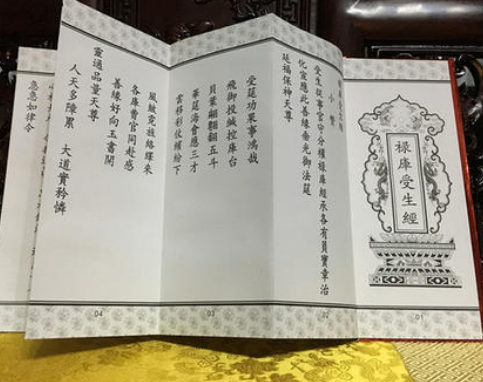 祿庫受生經
小讚
受生從事官守分權祿庫經承各有員實章治
化宣應此善緣垂光御法筵
延福保神天尊
受筵功果事鴻哉
飛御投緘控庫台
貝葉翩翩翻五斗
華筵海會應三才
雲移彩仗繽紛下
風飐霓旌絡繹來
各庫曹官同赴感
善緣好向玉書開
靈通品量天尊
人天多障累 大道實矜憐
急急如律令
01
02
03
04